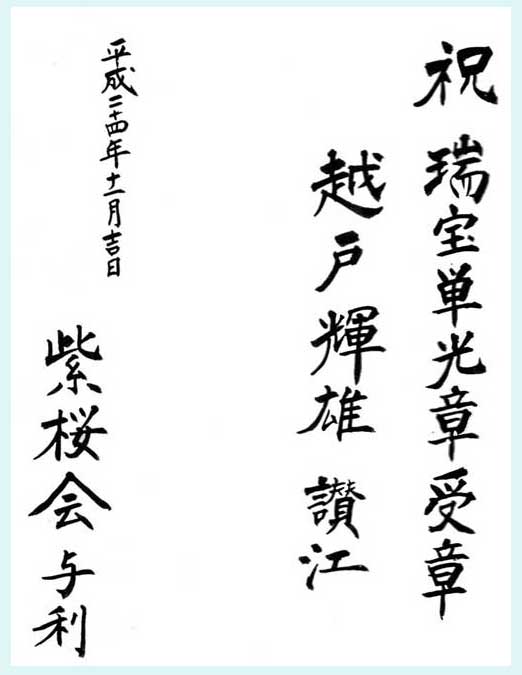 祝 瑞宝単光章受章
越戸輝雄 讃江
平成二十四年十一月吉日
紫桜会 与利